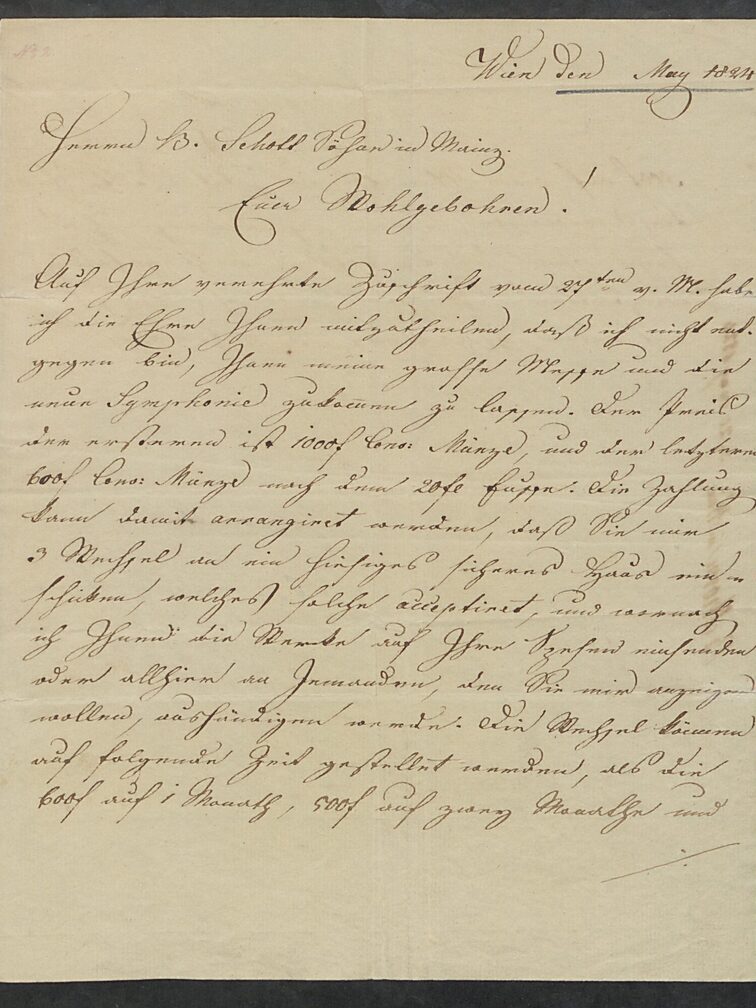 Nº 2.
Wien den May 1824
Herrn B. Schott Söhne in Mainz.
Euer Wohlgebohren!
Auf Ihre verehrte Zuschrift vom 27ten v. M. habe
ich die Ehre Ihnen mitzutheilen, daß ich nicht ent-
gegen bin, Ihnen meine grosse Messe und die
neue Symphonie zukommen zu lassen. Der Preis
der ersteren ist 1000f Conv: Münze, und der letzteren
600f Conv: Münze nach dem 20fl Fusse. Die Zahlung
kann damit arrangiret werden, daß Sie mir
3 Wechsel an ein hiesiges sicheres Haus ein-
schicken, welches solche acceptiret, und wornach
ich Ihnen die Werke auf Ihre Spesen einsenden
oder allhier an Jemanden, den Sie mir anzeigen
wollen, aushändigen werde. Die Wechsel können
auf folgende Zeit gestellet werden, als die
600f auf 1 Monath, 500f auf zwey Monathe und